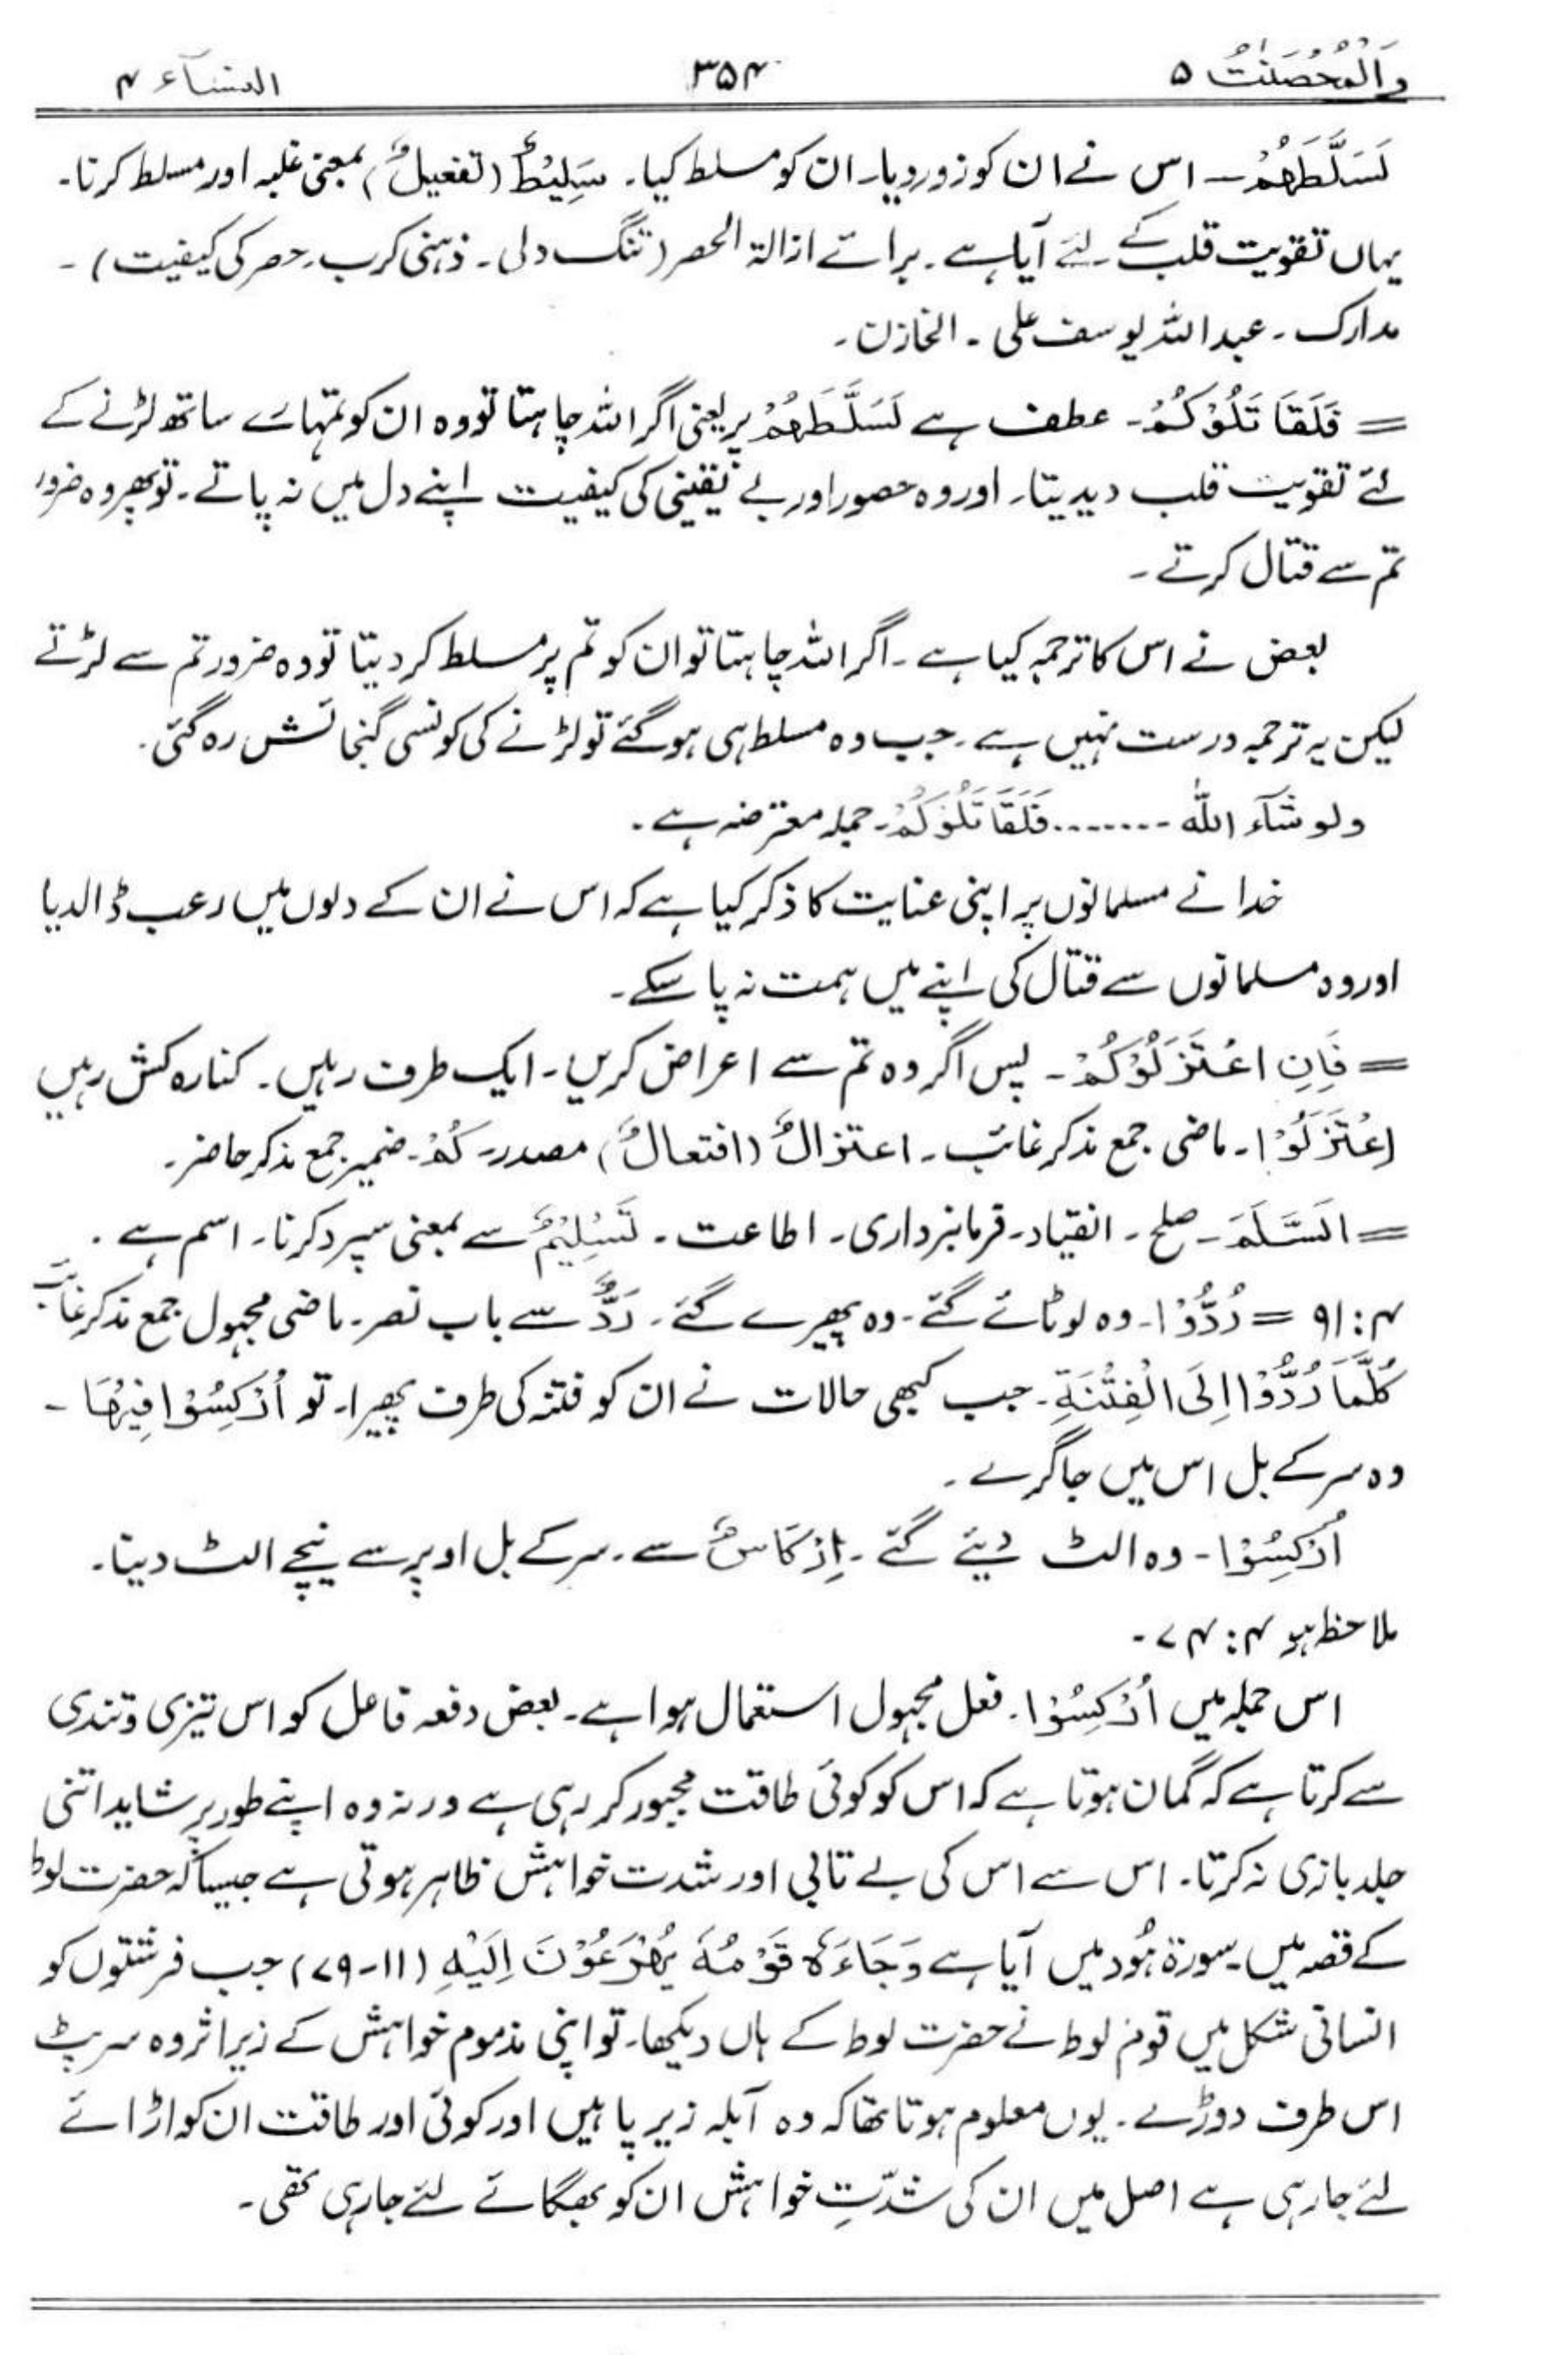 والمحصنٰت ۵ ۳۵۴ النسآء ۴
لَسَلَّطَھُمْ۔ اس نے ان کو زور دیا۔ ان کو مسلط کیا۔ سَلِیْطٌ (تفعیلٌ) بمعنی غلبہ اور مسلط کرنا۔
یہاں تقویت قلب کے لئے آیا ہے۔ برائے ازالۃ الحصر (تنگ دلی۔ ذہنی کرب۔ حصر کی کیفیت)۔
مدارک۔ عبداللہ یوسف علی۔ الخازن۔
= فَلَقَا تَلُوْکُمْ۔ عطف ہے لَسَلَّطَھُمْ پر یعنی اگر اللہ چاہتا تو وہ ان کو تمہارے ساتھ لڑنے کے
لئے تقویت قلب دیدیتا۔ اور وہ حصور اور بے یقینی کی کیفیت اپنے دل میں نہ پاتے۔ تو پھر وہ ضرور
تم سے قتال کرتے۔
بعض نے اس کا ترجمہ کیا ہے۔ اگر اللہ چاہتا تو ان کو تم پر مسلط کر دیتا تو وہ ضرور تم سے لڑتے
لیکن یہ ترجمہ درست نہیں ہے۔ جب وہ مسلط ہی ہوگئے تو لڑنے کی کونسی گنجائش رہ گئی۔
ولو شآء اللہ ........ فَلَقَا تَلُوْکُمْ۔ جملہ معترضہ ہے۔
خدا نے مسلمانوں پر اپنی عنایت کا ذکر کیا ہے کہ اس نے ان کے دلوں میں رعب ڈالدیا
اور وہ مسلمانوں سے قتال کی اپنے میں ہمت نہ پا سکے۔
= فَاِنِ اعْتَزَلُوْکُمْ۔ پس اگر وہ تم سے اعراض کریں۔ ایک طرف رہیں۔ کنارہ کش رہیں
اِعْتَزَلُوْا۔ ماضی جمع مذکر غائب۔ اعتزالٌ (افتعالٌ) مصدر۔ کُمْ۔ ضمیر جمع مذکر حاضر۔
= اَلسَّلَمَ۔ صلح۔ انقیاد۔ فرمانبرداری۔ اطاعت۔ تَسْلِیْمٌ سے بمعنی سپرد کرنا۔ اسم ہے۔
۴: ۹۱ = رُدُّوْا۔ وہ لوٹائے گئے۔ وہ پھیرے گئے۔ رَدٌّ سے باب نصر۔ ماضی مجہول جمع مذکر غائب
کُلَّمَا رُدُّوْا اِلَی الْفِتْنَۃِ۔ جب کبھی حالات نے ان کو فتنہ کی طرف پھیرا۔ تو اُرْکِسُوْا فِیْھَا۔
وہ سر کے بل اس میں جاگرے۔
اُرْکِسُوْا۔ وہ الٹ دیئے گئے۔ اِرْکَاسٌ سے۔ سر کے بل اوپر سے نیچے الٹ دینا۔
ملاحظہ ہو ۴: ۷۴۔
اس جملہ میں اُرْکِسُوْا۔ فعل مجہول استعمال ہوا ہے۔ بعض دفعہ فاعل کو اس تیزی و تندی
سے کرتا ہے کہ گمان ہوتا ہے کہ اس کو کوئی طاقت مجبور کر رہی ہے ورنہ وہ اپنے طور پر شاید اتنی
جلد بازی نہ کرتا۔ اس سے اس کی بے تابی اور شدت خواہش ظاہر ہوتی ہے جیسا کہ حضرت لوط
کے قصہ میں۔ سورۃ ہُود میں آیا ہے وَجَاءَہٗ قَوْمُہٗ یُھْرَعُوْنَ اِلَیْہِ (۱۱-۷۹) جب فرشتوں کو
انسانی شکل میں قوم لوط نے حضرت لوط کے ہاں دیکھا۔ تو اپنی مذموم خواہش کے زیر اثر وہ سرپٹ
اس طرف دوڑے۔ یوں معلوم ہوتا تھا کہ وہ آبلہ زیر پا ہیں اور کوئی اور طاقت ان کو اڑائے
لئے جارہی ہے اصل میں ان کی شدّتِ خواہش ان کو بھگائے لئے جارہی تھی۔